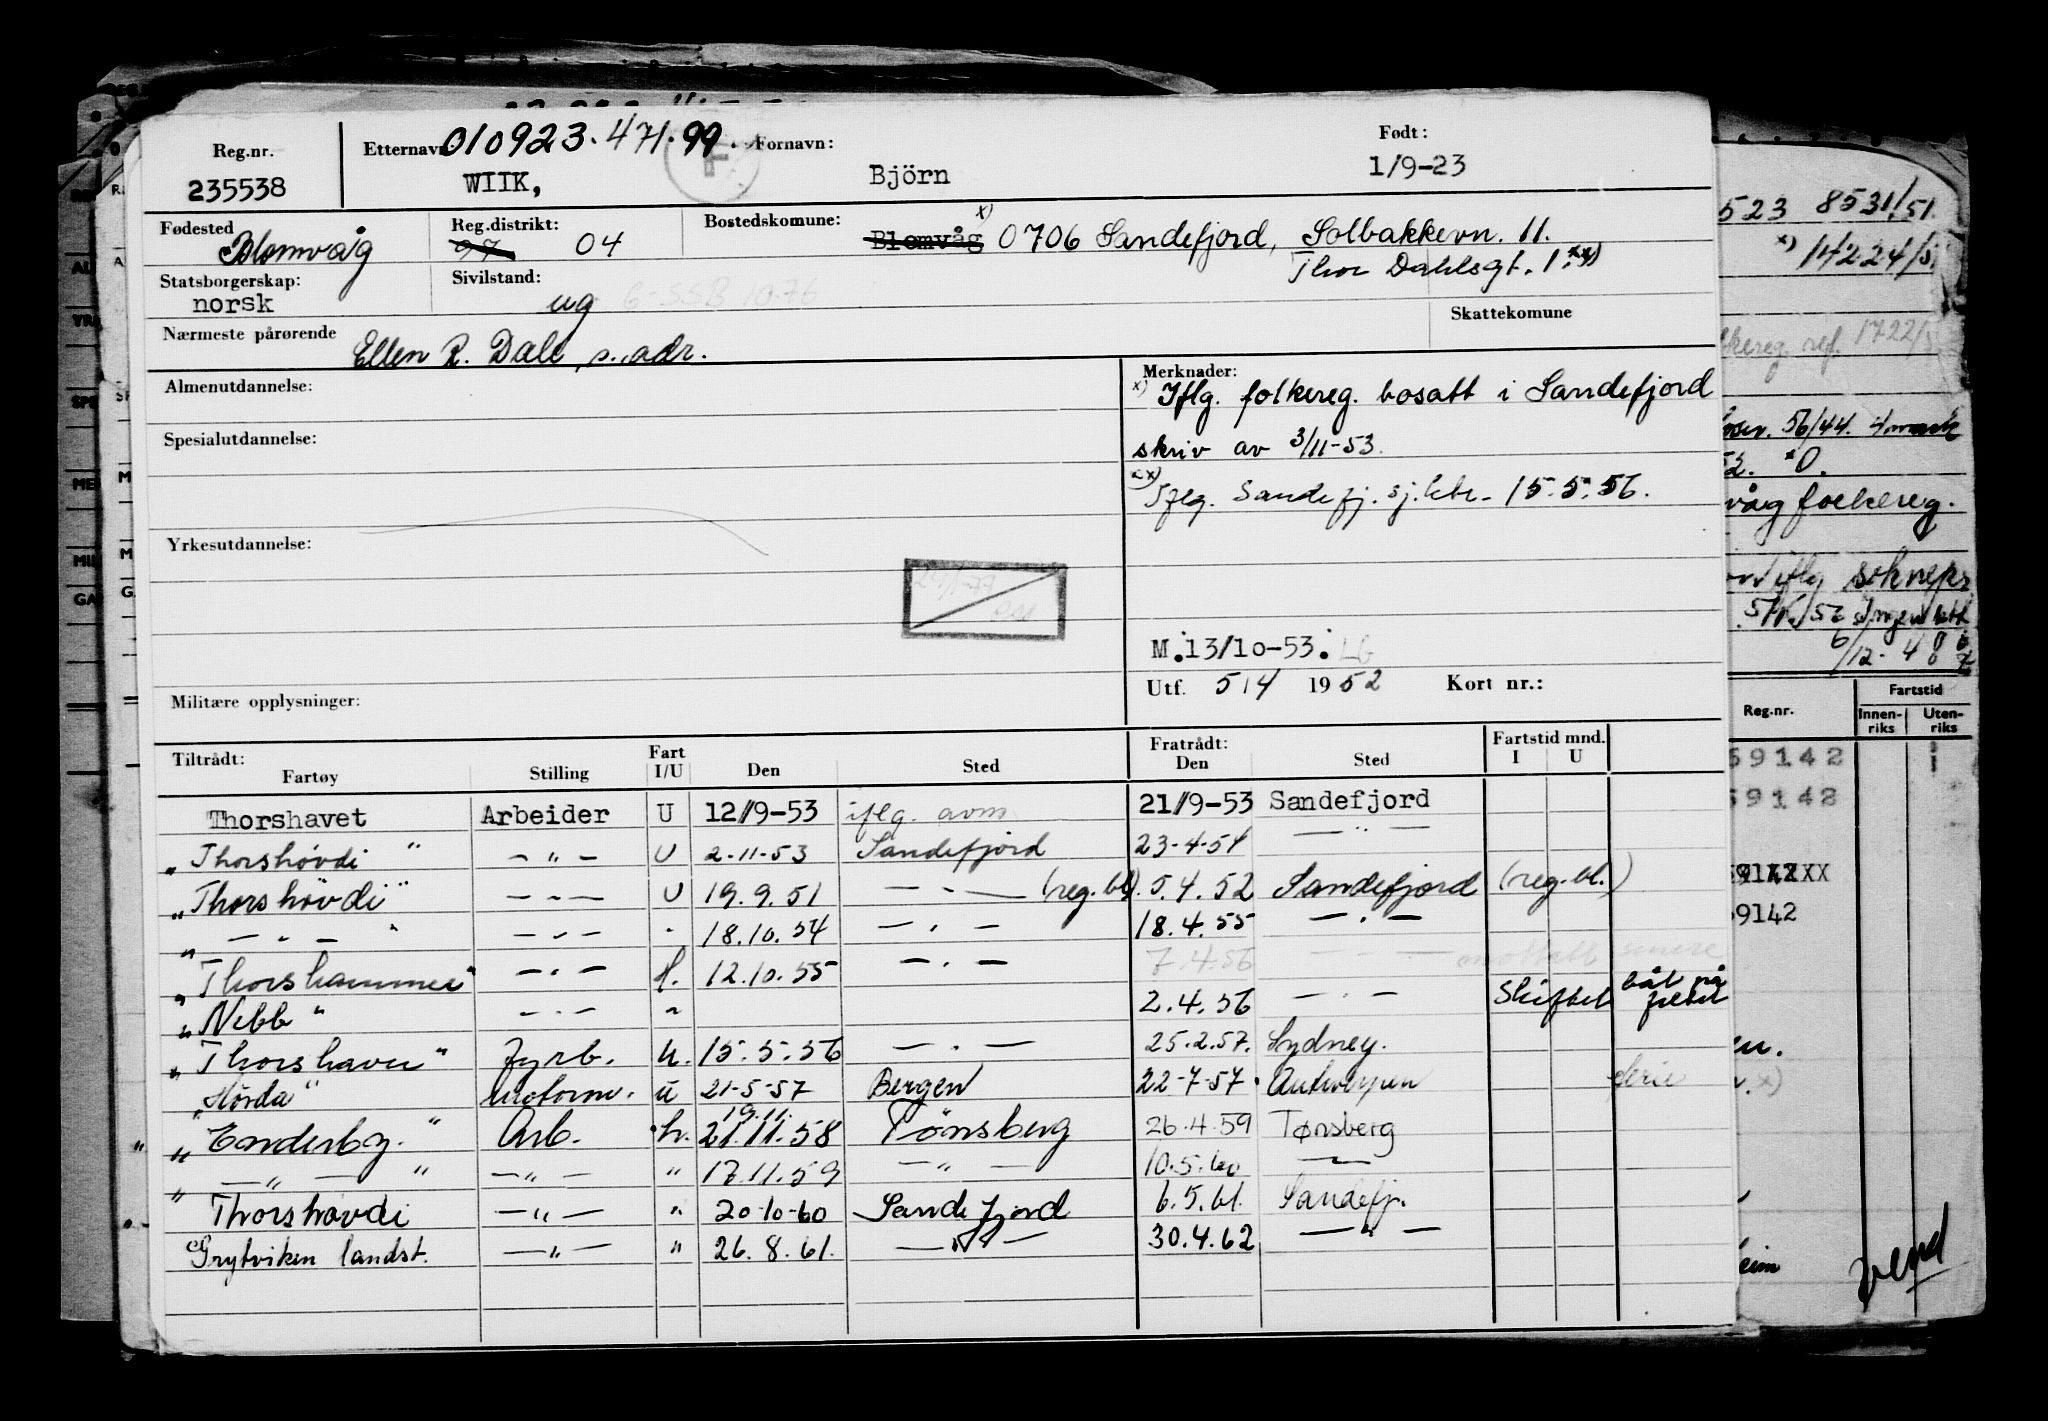 010923.471.99.
Reg.nr. Etternavn: Fornavn: Født:
235538 WIIK, Björn 1/9-23
Fødested Reg.distrikt: Bostedskomune: x)
Blomvåg 97 04 Blomvåg 0706 Sandefjord, Solbakkevn. 11.
Thor Dahlsgt. 1. xx)
Statsborgerskap: Sivilstand:
norsk ug 6-SSB 10.76
Skattekomune
Nærmeste pårørende Ellen R. Dale, s. adr.
Almenutdannelse:
Spesialutdannelse:
Yrkesutdannelse:
Militære opplysninger:
Merknader:
x) Iflg. folkereg. bosatt i Sandefjord
skriv av 3/11-53.
xx) Iflg. Sandefj. sj. 15.5.56.
M.13/10-53. LG
Utf. 5/4 1952 Kort nr.:
Tiltrådt: Fart Fratrådt: Fartstid mnd.
Fartøy Stilling I/U Den Sted Den Sted I U
Thorshavet Arbeider U 12/9-53 iflg. avm 21/9-53 Sandefjord
"Thorshövdi" - " - U 2-11-53 Sandefjord 23-4-54 - " -
"Thorshövdi" - " - U 19.9.51 - " - (reg.bl). 5.4.52 Sandefjord (reg.bl.)
" - " - " - " - " 18.10.54 - " - 18.4.55 - " -
"Thorshammer" - " - H. 12.10.55 - " - 7.4.56 - " - mottatt senere
"Nebb" - " - " 2.4.56 - " - Skiftet båt på feltet
"Thorshavn" Fyrb. U. 15.5.56 - " - 25.2.57. Sydney.
"Hörda" Motorm. U 21-5-57 Bergen 22-7-57 Antwerpen ferie
19.11.
" "Enderby." Arb. h. 21.11.58 Tønsberg 26.4.59 Tørsberg
" - " - " - " - " 17.11.59 - " - 10.5.60 - " -
Thorshövdi - " - " 20-10-60 Sandefjord 6.5.61. Sandefj.
Grytviken landst. - " - " 26.8.61. - " - 30.4.62 - " -
523 8531/51.
x) 14224/5
ref. 1722/5
56/44.
52. x0.
våg folkereg.
iflg
6/12-48
Fartstid
Reg.nr. Innen-riks Uten-riks
59142
59142
9142XX
9142
vend